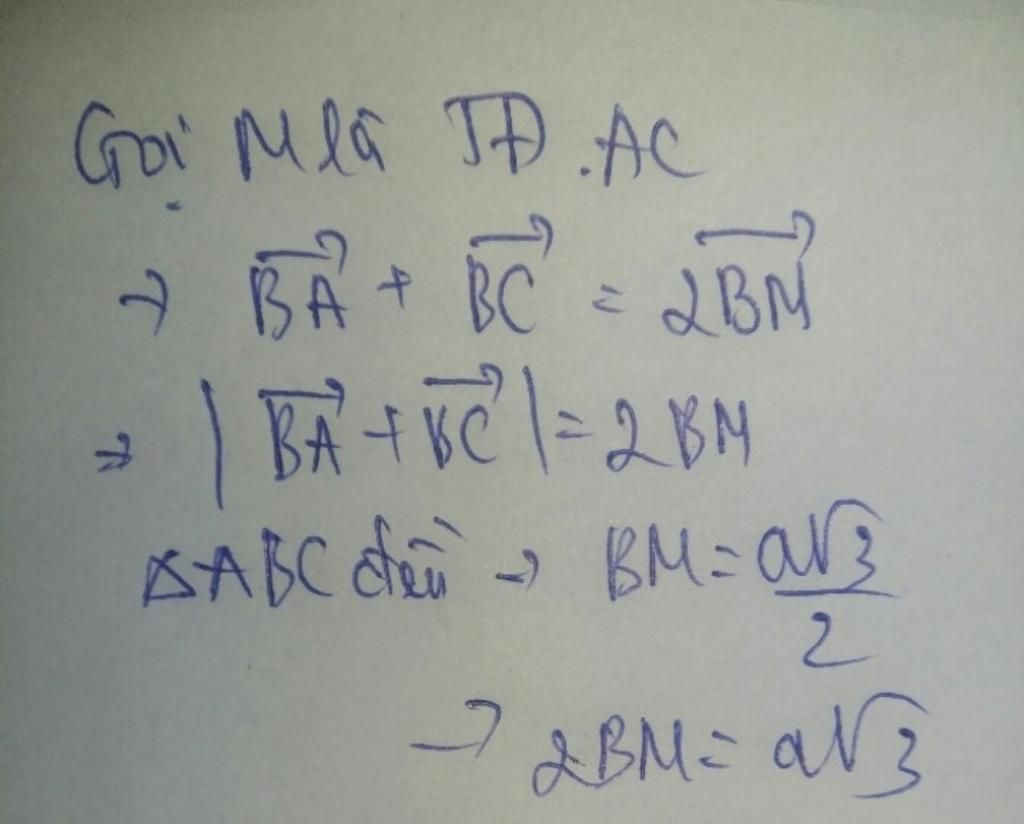 Gọi M là TĐ.AC
→ $\overrightarrow{BA} + \overrightarrow{BC} = \overrightarrow{2BM}$
⇒ $|\overrightarrow{BA} + \overrightarrow{BC}| = 2BM$
ΔABC đều → $BM = \frac{a\sqrt{3}}{2}$
→ $2BM = a\sqrt{3}$